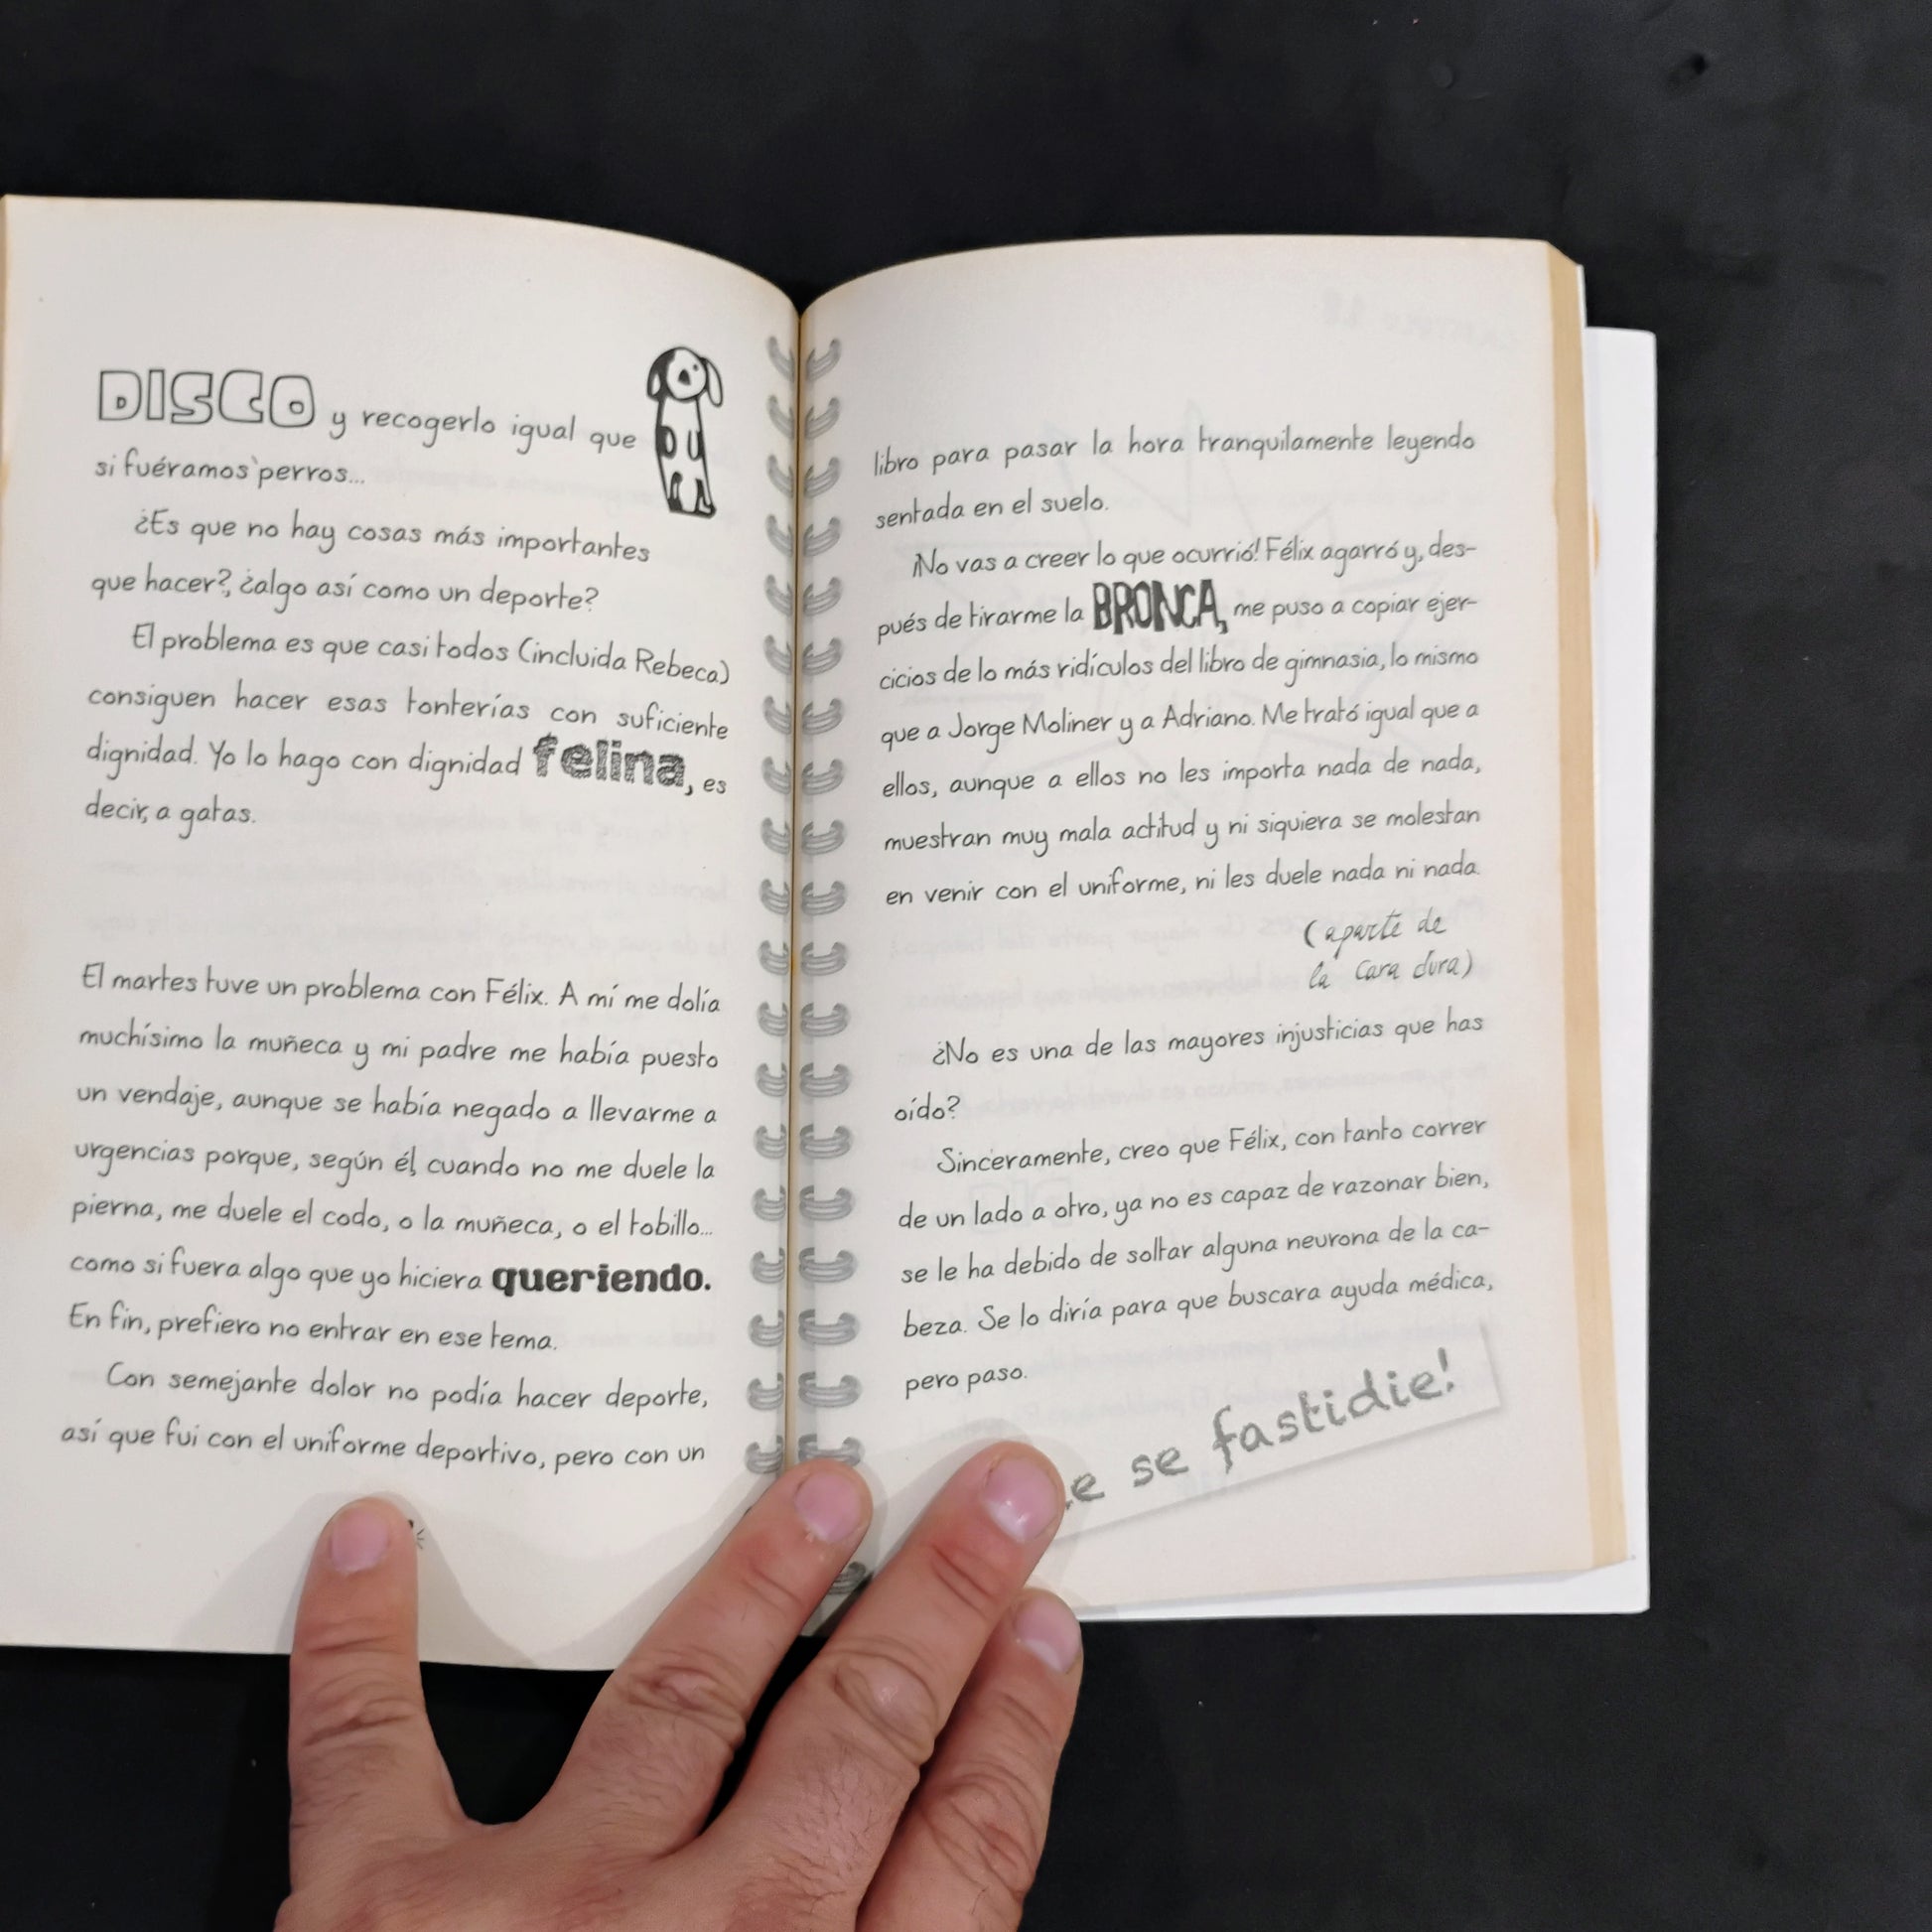 DISCO y recogerlo igual que
si fuéramos perros...
¿Es que no hay cosas más importantes
que hacer?, ¿algo así como un deporte?
El problema es que casi todos (incluida Rebeca)
consiguen hacer esas tonterías con suficiente
dignidad. Yo lo hago con dignidad felina, es
decir, a gatas.
El martes tuve un problema con Félix. A mí me dolía
muchísimo la muñeca y mi padre me había puesto
un vendaje, aunque se había negado a llevarme a
urgencias porque, según él, cuando no me duele la
pierna, me duele el codo, o la muñeca, o el tobillo...
como si fuera algo que yo hiciera queriendo.
En fin, prefiero no entrar en ese tema.
Con semejante dolor no podía hacer deporte,
así que fui con el uniforme deportivo, pero con un
libro para pasar la hora tranquilamente leyendo
sentada en el suelo.
¡No vas a creer lo que ocurrió! Félix agarró y, des-
pués de tirarme la BRONCA, me puso a copiar ejer-
cicios de lo más ridículos del libro de gimnasia, lo mismo
que a Jorge Moliner y a Adriano. Me trató igual que a
ellos, aunque a ellos no les importa nada de nada,
muestran muy mala actitud y ni siquiera se molestan
en venir con el uniforme, ni les duele nada ni nada.
(aparte de
la cara dura)
¿No es una de las mayores injusticias que has
oído?
Sinceramente, creo que Félix, con tanto correr
de un lado a otro, ya no es capaz de razonar bien,
se le ha debido de soltar alguna neurona de la ca-
beza. Se lo diría para que buscara ayuda médica,
pero paso.
se fastidie!